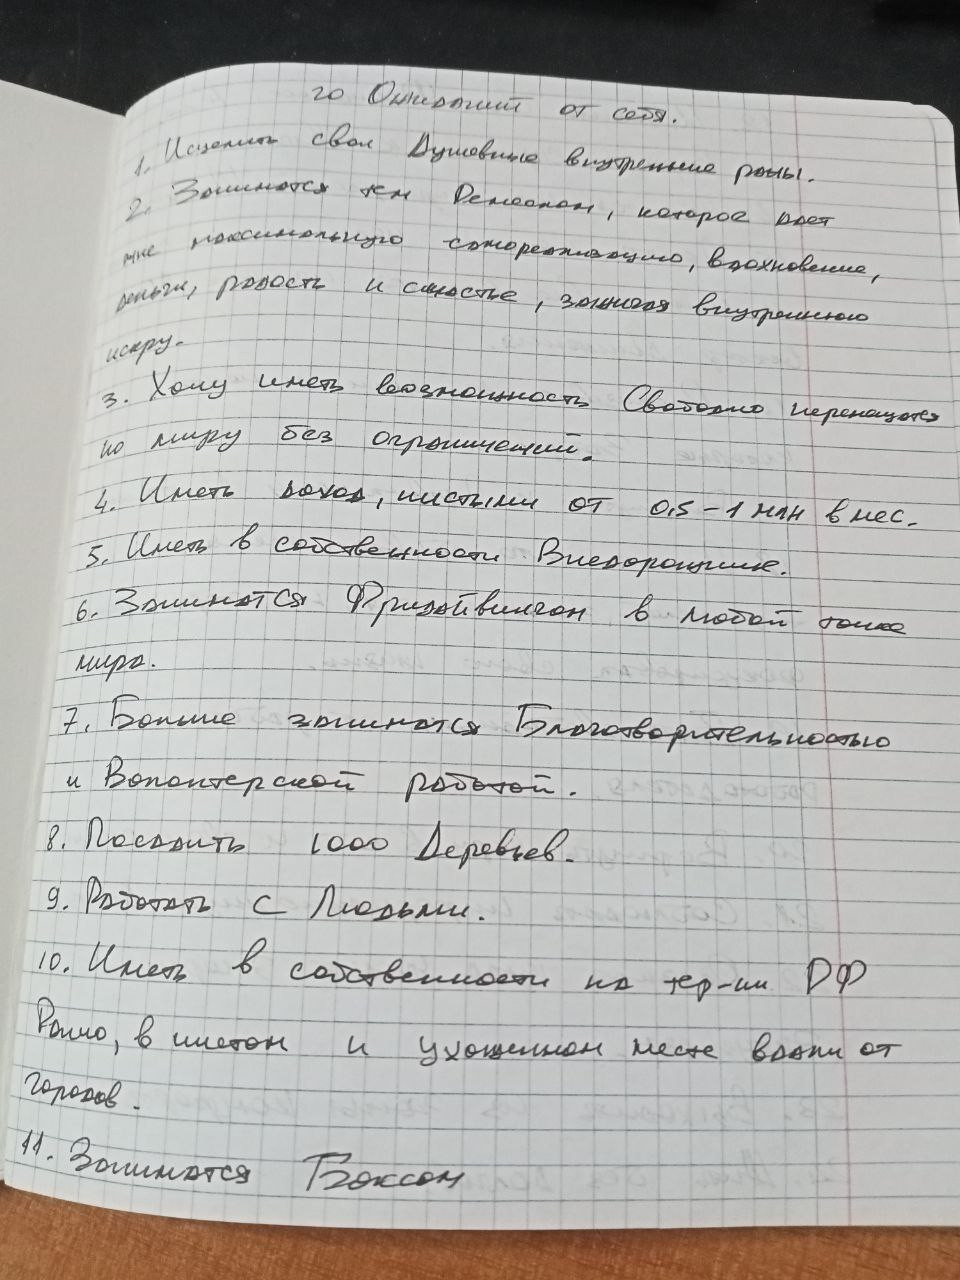 20 Ожиданий от себя.
1. Исцелить свои Душевные внутренние раны.
2. Заниматся тем Ремеслом, которое дает
мне максимальную самореализацию, вдохновение,
деньги, радость и счастье, зажигая внутреннюю
искру.
3. Хочу иметь возможность Свободно перемещатся
по миру без ограничений.
4. Иметь доход, чистыми от 0,5-1 млн в мес.
5. Иметь в собственности Внедорожник.
6. Заниматся Фридайвингом в любой точке
мира.
7. Больше заниматся Благотворительностью
и Волонтерской работой.
8. Посадить 1000 Деревьев.
9. Работать с Людьми.
10. Иметь в собственности на тер-ии РФ
Ранчо, в чистом и ухоженном месте вдали от
городов.
11. Заниматся Боксом